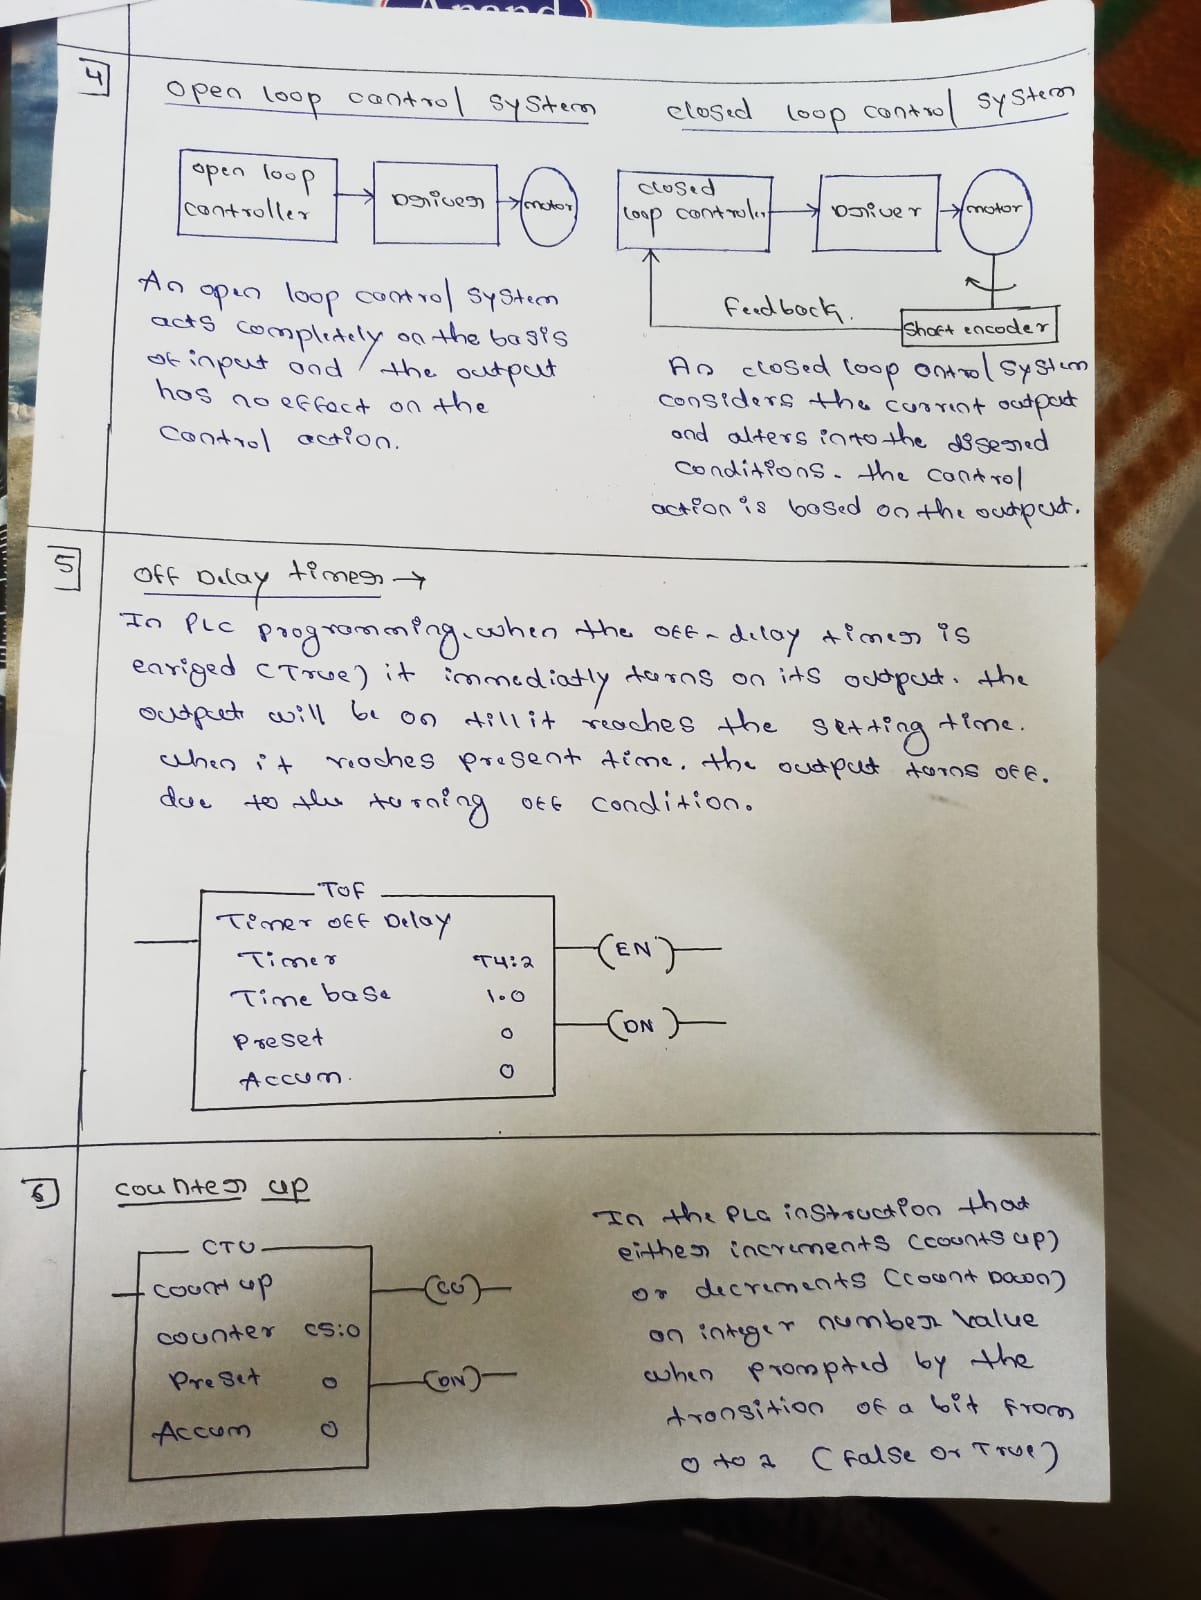 Anand
4
Open loop control System
closed loop control System
open loop
controller
Driver
motor
closed
loop controler
Driver
motor
Feedback.
Shaft encoder
An open loop control System
acts completely on the basis
of input and the output
has no effect on the
Control action.
An closed loop ontrol System
considers the current output
and alters into the disered
conditions. the control
action is based on the output.
5
Off Delay timer →
In PLC programming, when the off-delay timer is
enriged (True) it immediatly turns on its output. the
output will be on till it reaches the setting time.
when it reaches present time, the output turns off.
due to the turning off condition.
TOF
Timer off Delay
Timer T4:2
Time base 1.0
Preset 0
Accum. 0
(EN)
(DN)
6
Counter up
CTU
count up
counter C5:0
Preset 0
Accum 0
(CU)
(DN)
In the PLC instruction that
either increments (counts up)
or decrements (count Down)
an integer number value
when prompted by the
transition of a bit from
0 to 2 (false or True)